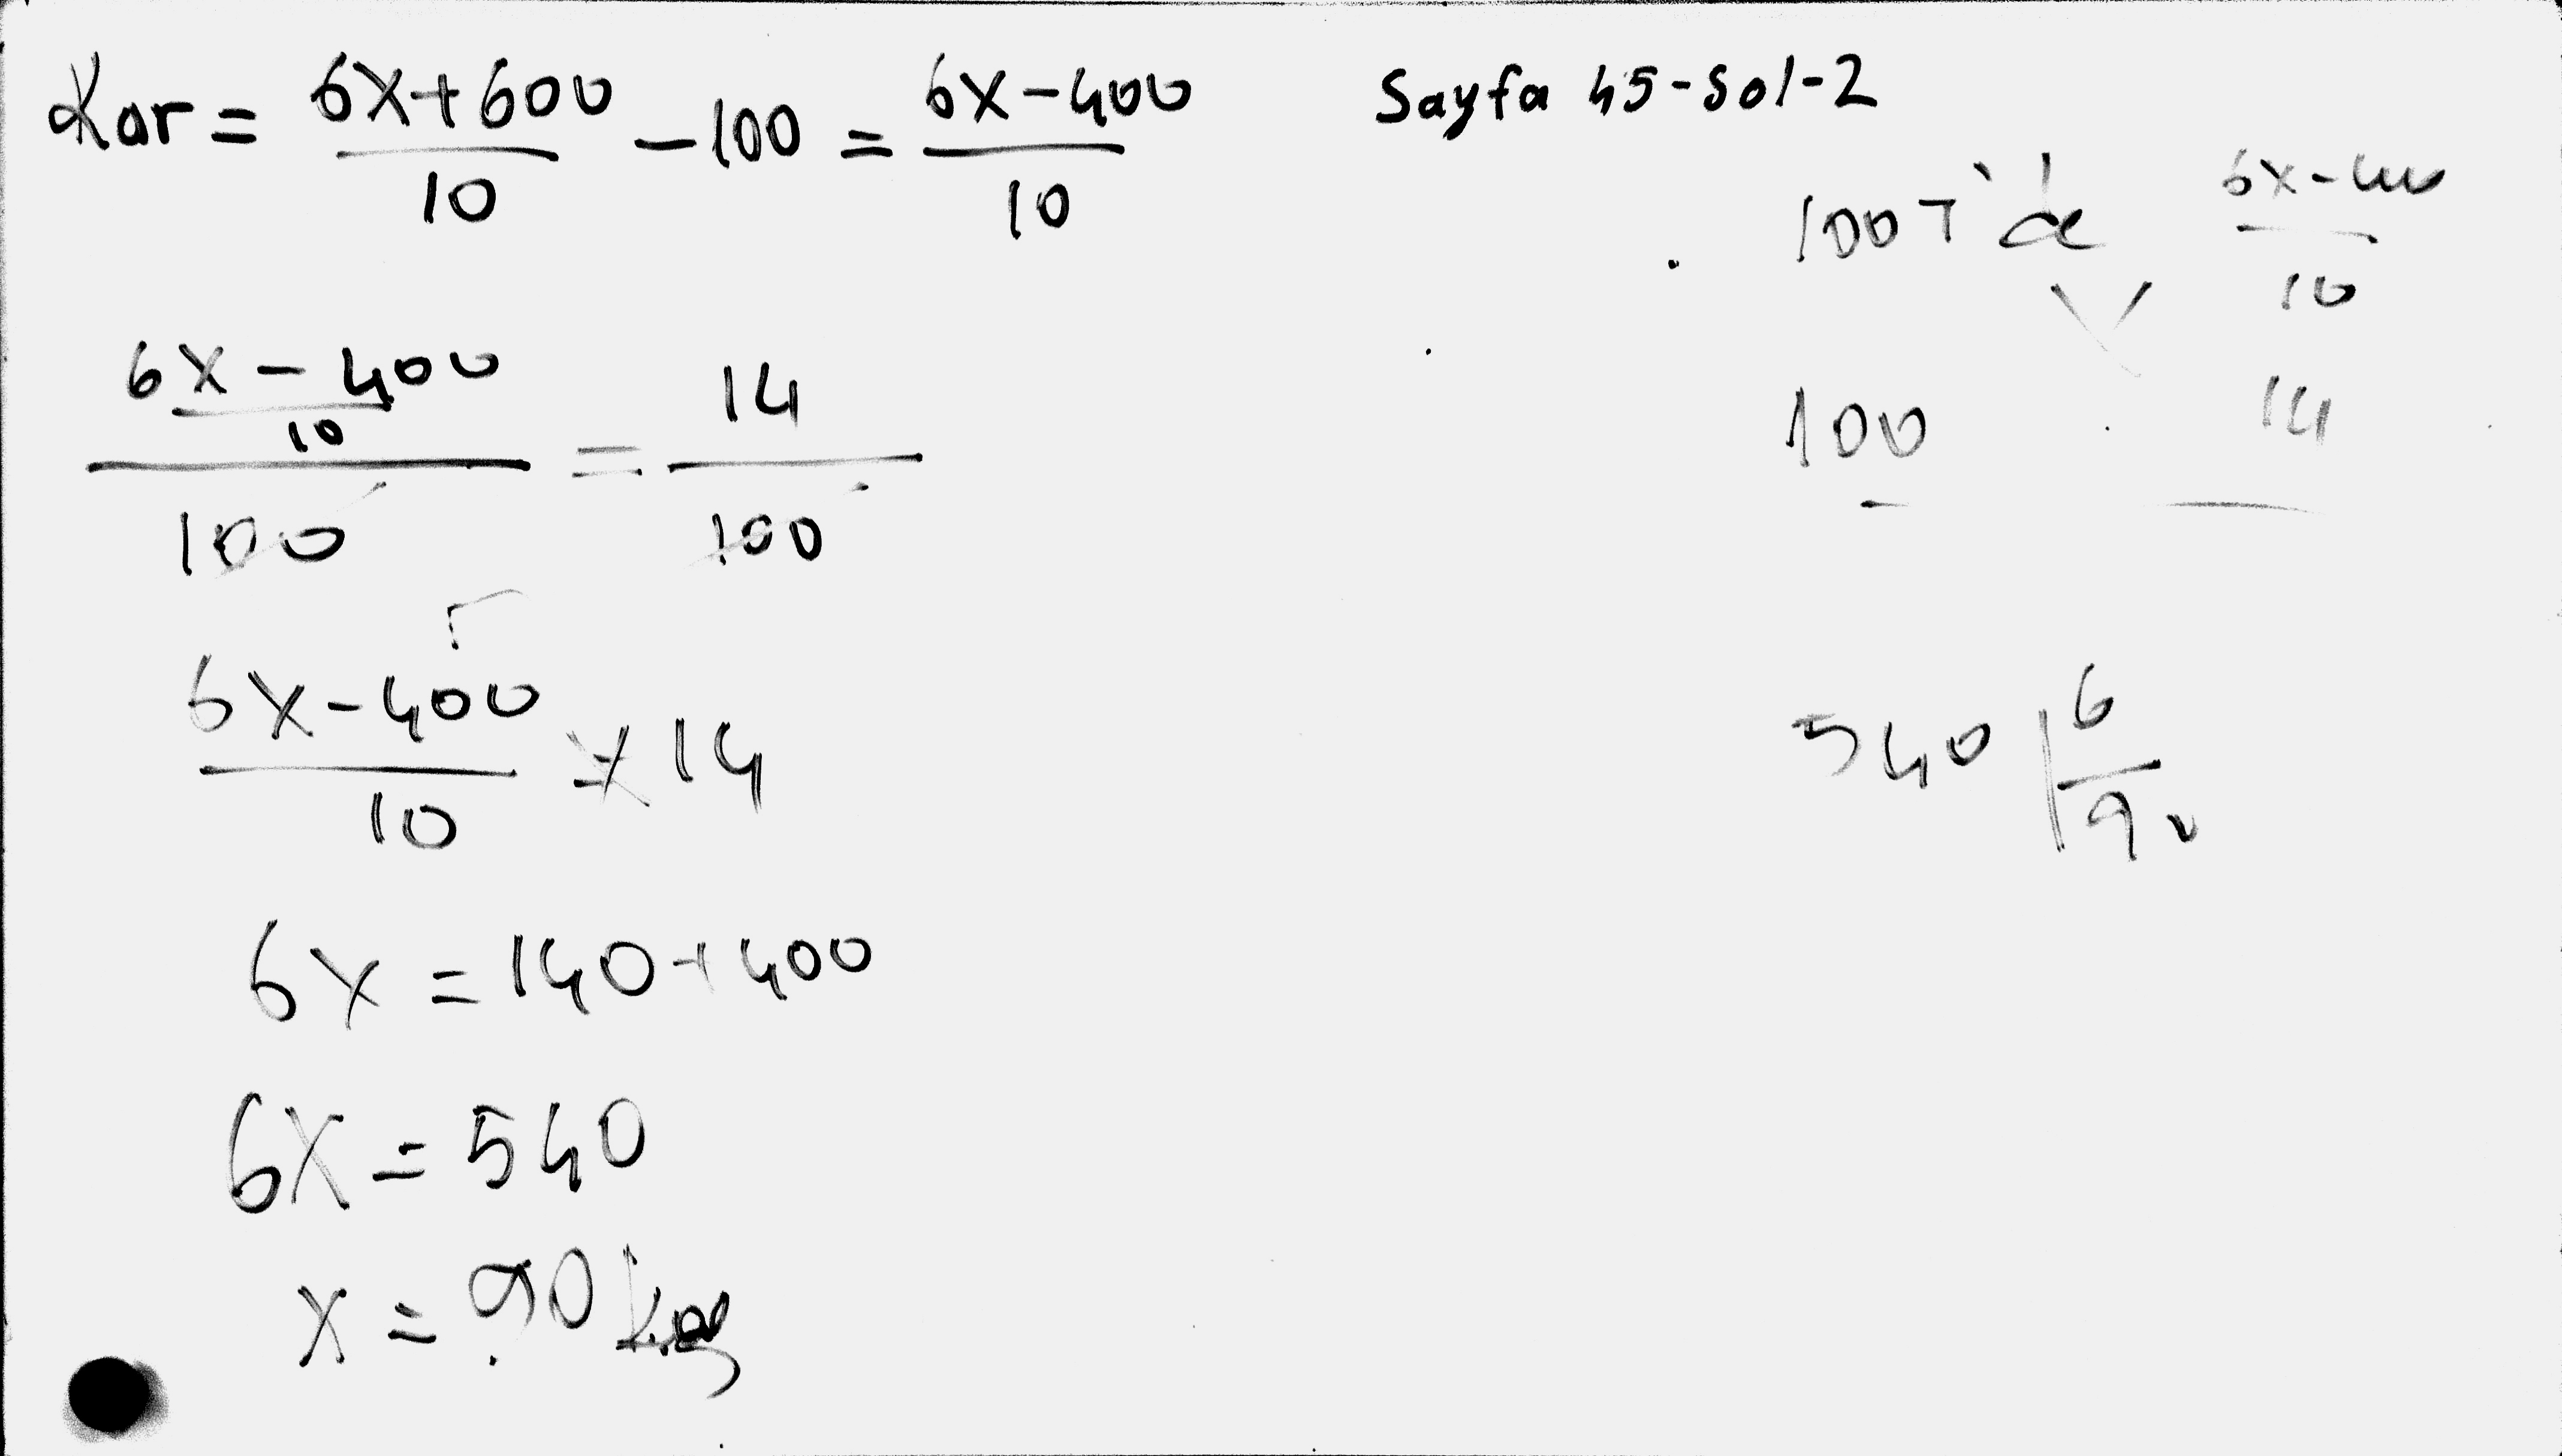 Kar = (6x+600)/10 - 100 = (6x-400)/10
Sayfa 45-Sol-2
100T'de (6x-400)/10
100 14
((6x-400)/10)/100 = 14/100
(6x-400)/10 = 14
540 | 6
90
6x = 140+400
6x = 540
x = 90 kg